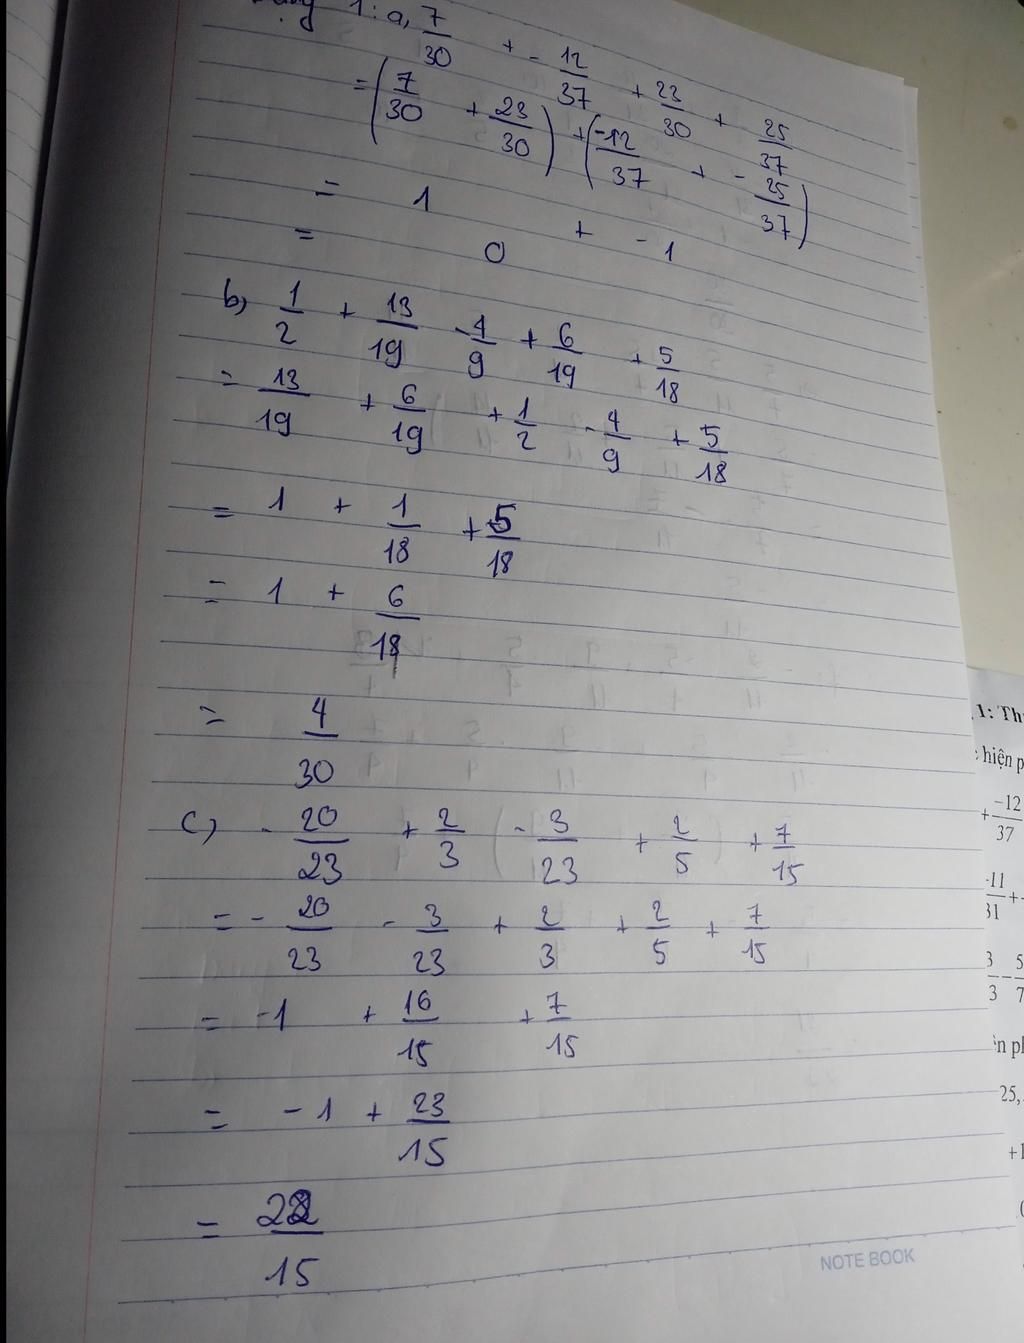 1: a, 7/30 + - 12/37 + 23/30 + 25/37
= (7/30 + 23/30) + (-12/37 + - 25/37)
= 1 + - 1
= 0
b, 1/2 + 13/19 - 4/9 + 6/19 + 5/18
= 13/19 + 6/19 + 1/2 - 4/9 + 5/18
= 1 + 1/18 + 5/18
= 1 + 6/18
= 4/30
c, - 20/23 + 2/3 ( - 3/23 + 2/5 ) + 7/15
= - 20/23 - 3/23 + 2/3 + 2/5 + 7/15
= -1 + 16/15 + 7/15
= - 1 + 23/15
= 22/15
NOTE BOOK
1: Th
hiện p
+ -12/37
-11/31 +
3/3 - 5/7
25,